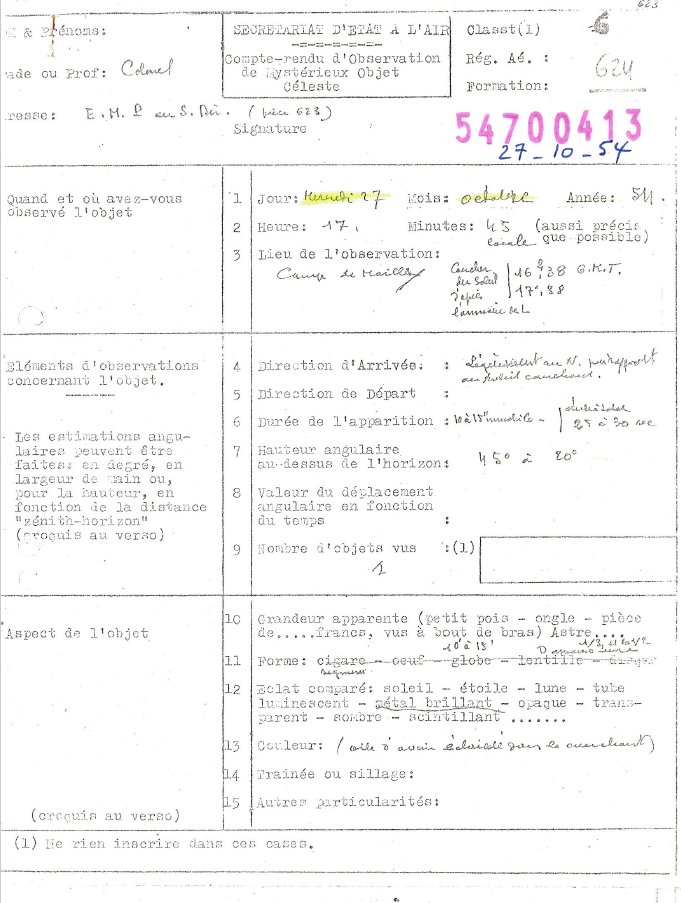 623
& Prénoms:
SECRETARIAT D'ETAT A L'AIR
Classt(1) 6
ade ou Prof: Colonel
Compte-rendu d'Observation
de Mystérieux Objet
Céleste
Rég. Aé. :
624
Formation:
resse: E.M.P au S. Dir. (pièce 623)
Signature
54700413
27_10_54
Quand et où avez-vous
observé l'objet
1 Jour: Mercredi 27 Mois: octobre Année: 54.
2 Heure: 17. Minutes: 45 (aussi précis
locale que possible)
3 Lieu de l'observation:
Camp de Mailly
Coucher
du Soleil
d'après
l'annuaire du L
16.38 G.M.T.
17.38
Eléments d'observations
concernant l'objet.
4 Direction d'Arrivée. : Légèrement au N. par rapport
au soleil couchant.
5 Direction de Départ :
6 Durée de l'apparition : 10 à 15" immobile - durée totale
25 à 30 sec
- Les estimations angu-
laires peuvent être
faites: en degré, en
largeur de main ou,
pour la hauteur, en
fonction de la distance
"zénith-horizon"
(croquis au verso)
7 Hauteur angulaire
au-dessus de l'horizon: 45° à 20°
8 Valeur du déplacement
angulaire en fonction
du temps :
9 Nombre d'objets vus :(1)
1
Aspect de l'objet
10 Grandeur apparente (petit pois - ongle - pièce
de.....francs, vus à bout de bras) Astre....
10' à 15' 1/3, et 1/2
11 Forme: cigare - oeuf - globe - lentille - disque
segment
12 Eclat comparé: soleil - étoile - lune - tube
luminescent - métal brillant - opaque - trans-
parent - sombre - scintillant .......
13 Couleur: (aile d'avion éclairée dans le couchant)
14 Trainée ou sillage:
15 Autres particularités:
(croquis au verso)
(1) Ne rien inscrire dans ces cases.